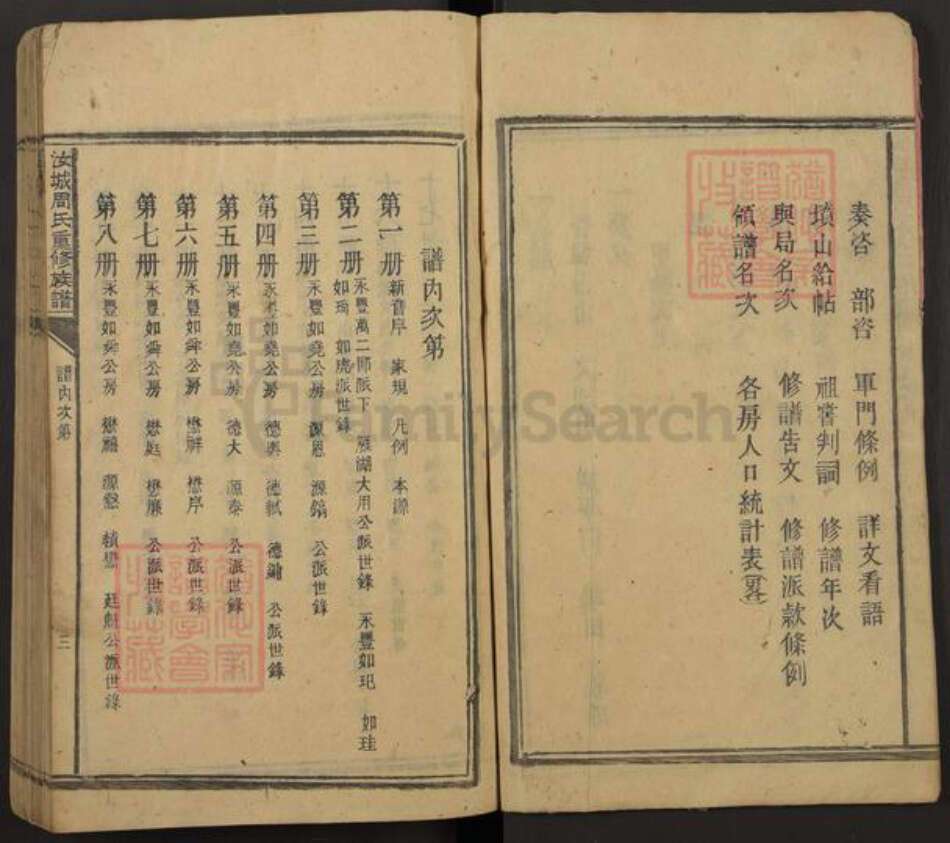 奏咨　部咨　軍門條例　詳文看語
墳山給帖　祖嘗判詞　修譜年次
與局名次　修譜告文　修譜派款條例
領譜名次　各房人口統計表
譜內次第
第一册 新音序　家規　凡例　本源
第二册 永豐萬二郎派下　雁湖大用公派世錄　永豐如玘　如珪
如琦　如虎派世錄
第三册 永豐如堯公房　源恩　源鎬　公派世錄
第四册 永豐如堯公房　德輿　德軾　德鏞　公派世錄
第五册 永豐如堯公房　德大　源泰　公派世錄
第六册 永豐如舜公房　懋祥　懋序　公派世錄
第七册 永豐如舜公房　懋庭　懋廉　公派世錄
第八册 永豐如舜公房　源懇　公派世錄
汝城周氏重修族譜
譜內次第
三
FamilySearch